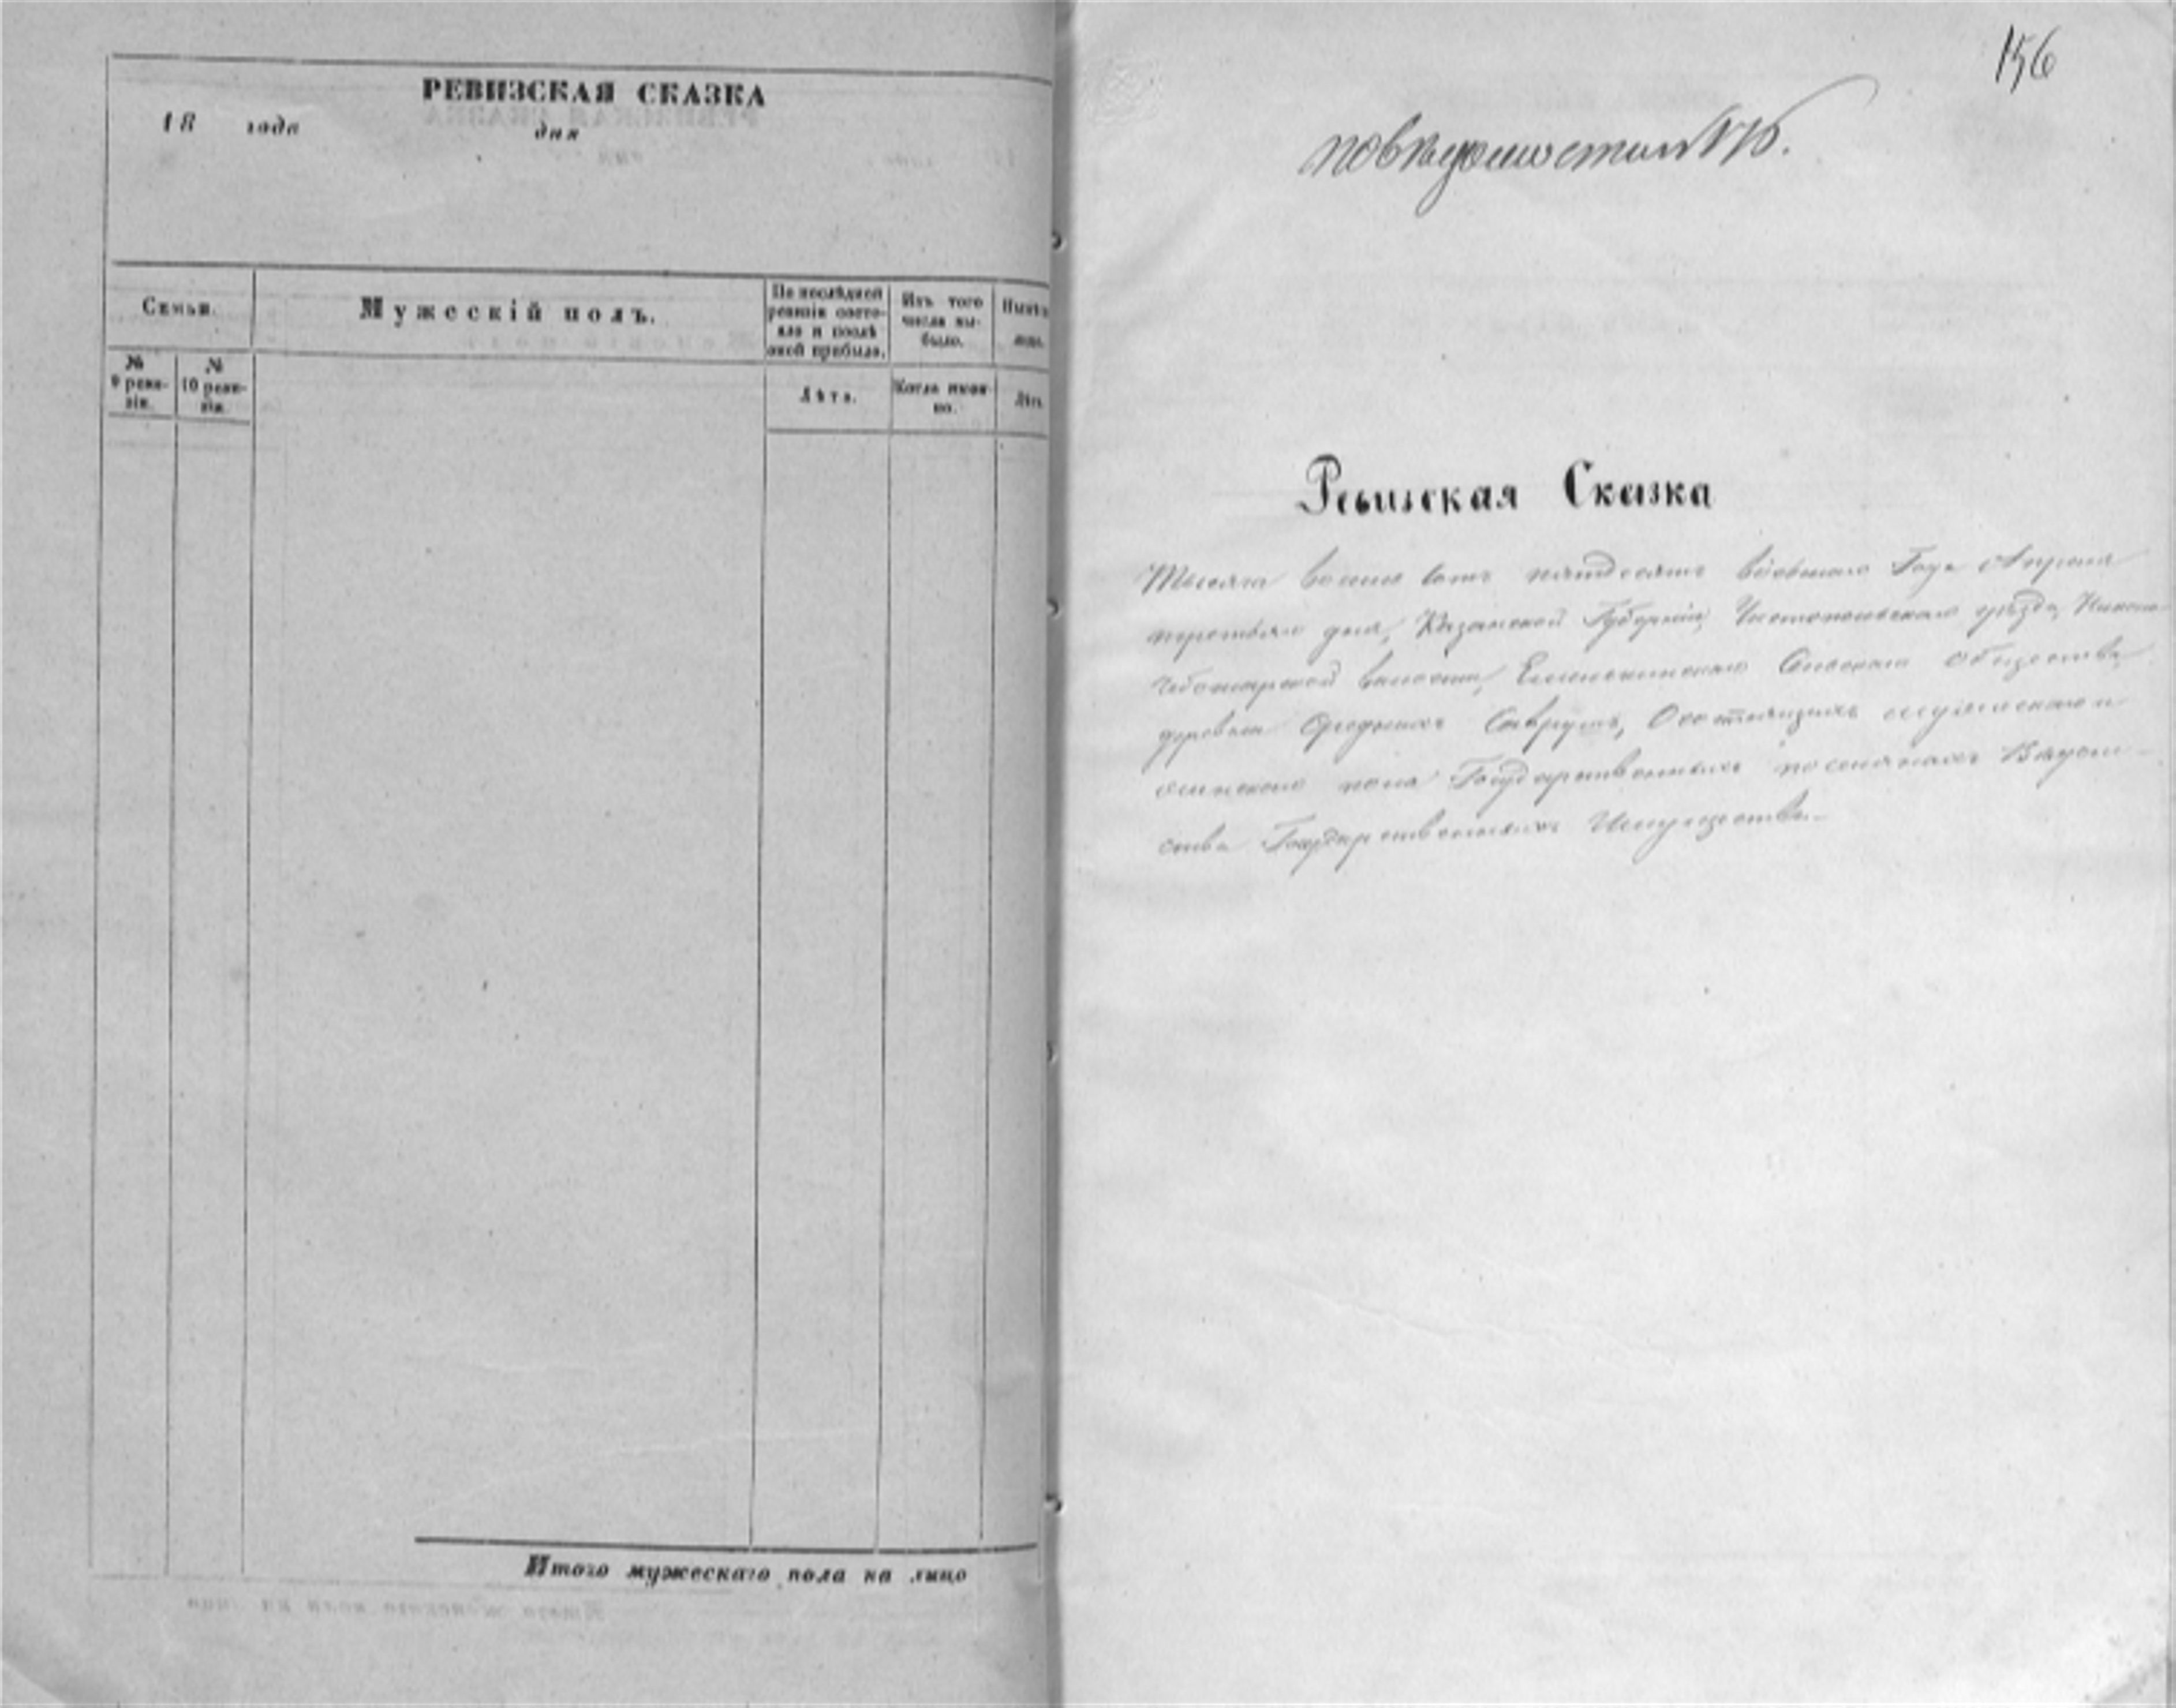 РЕВИЗСКАЯ СКАЗКА
18 года дня
Семьи.
Мужескій полъ.
По послѣдней ревизіи состояло и послѣ оной прибыло.
Изъ того числа выбыло.
№ 9 ревизіи.
№ 10 ревизіи.
Лѣта.
Когда именно.
Итого мужескаго пола на лицо
156
по вѣдомости №
Ревизская Сказка
Тысяча восемь сотъ пятдесятъ восьмаго Года Апреля
третьяго дня, Казанской Губерніи, Чистопольскаго уѣзда,
Чебоксарской волости, Сельскаго общества
деревни Среднихъ Саврушъ, О состоящихъ мужескаго и
женскаго пола Государственныхъ поселянахъ Вѣдом-
ства Государственныхъ Имуществъ.